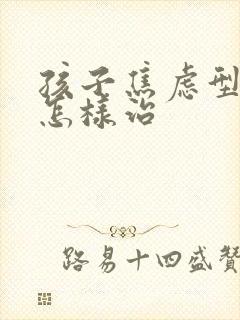 孩子焦虑型
怎样治
路易十四盛赞